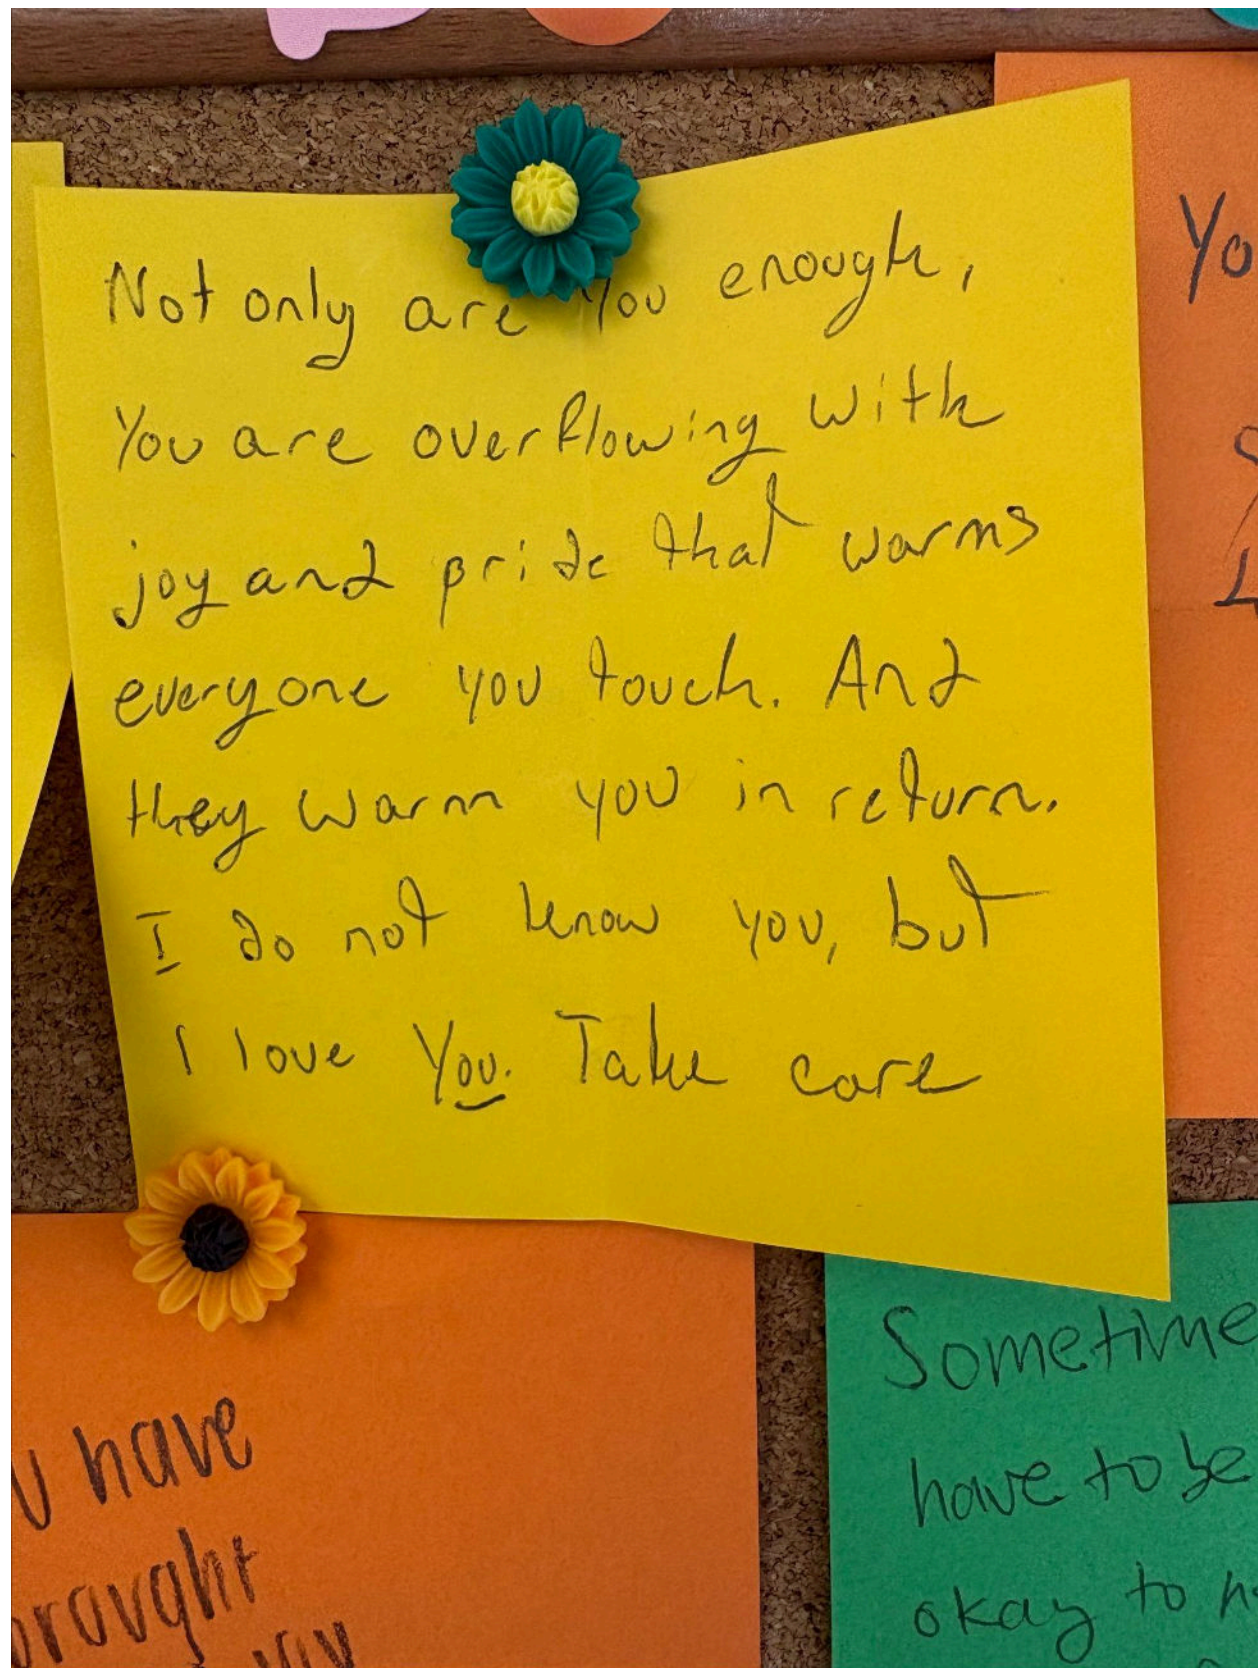 Not only are you enough,
You are overflowing with
joy and pride that warms
everyone you touch. And
they warm you in return.
I do not know you, but
I love You. Take care
Yo
have
brought
Sometime
have to be
okay to n